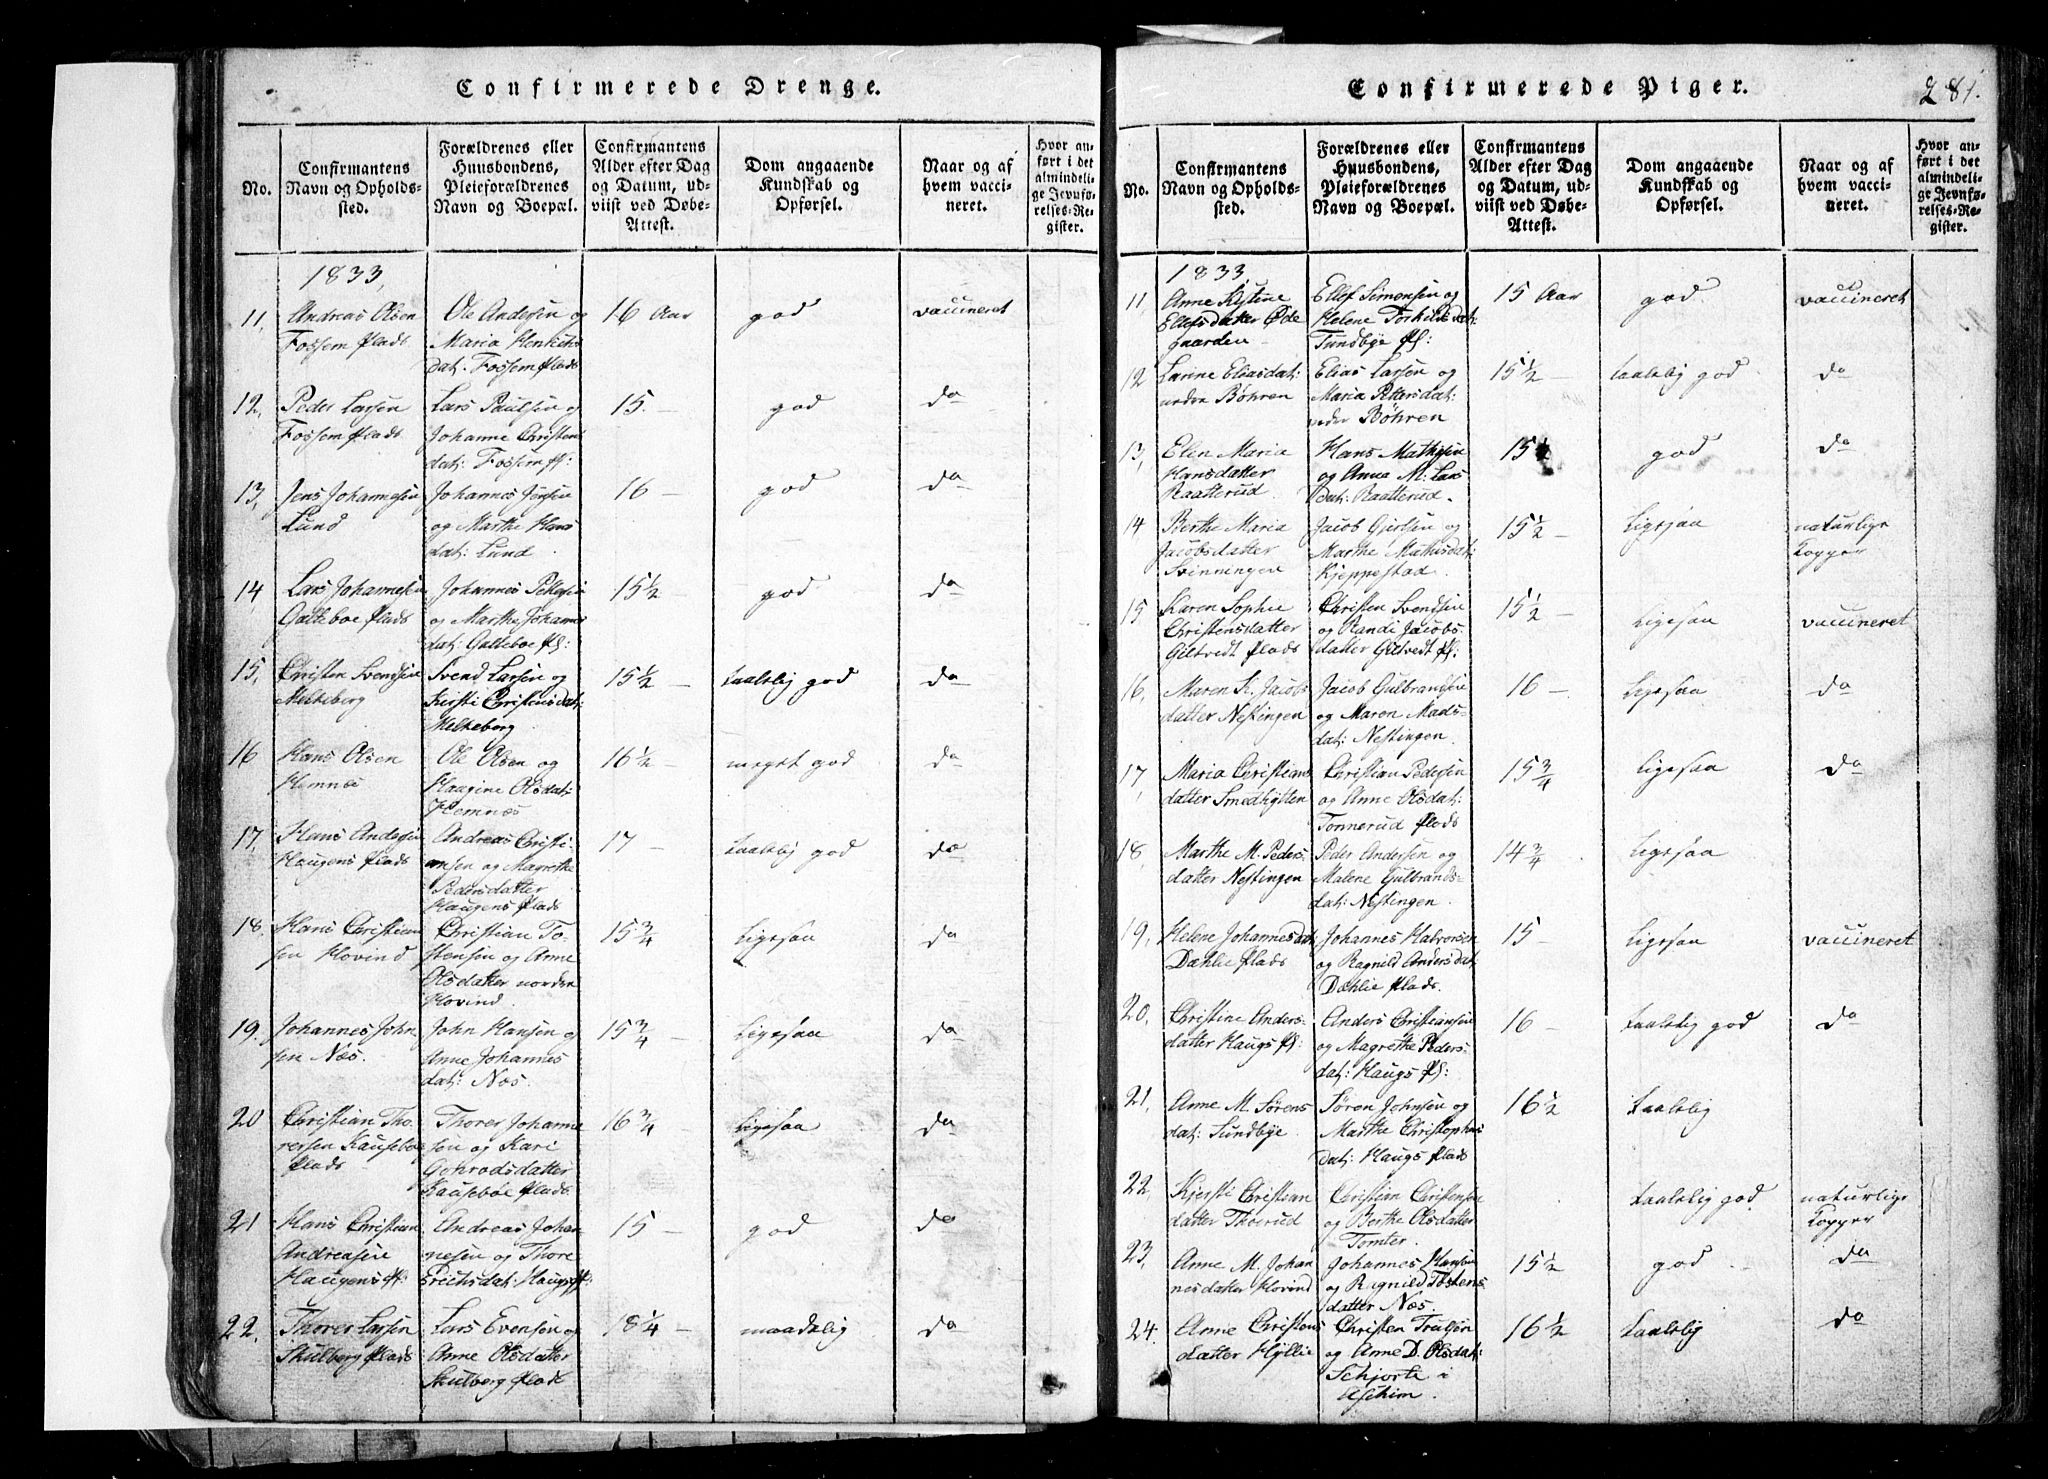 Confirmerede Drenge.
No.
Confirmantens
Navn og Opholds-
sted.
Forældrenes eller
Huusbondens,
Pleieforældrenes
Navn og Boepæl.
Confirmantens
Alder efter Dag
og Datum, ud-
viist ved Døbe-
Attest.
Dom angaaende
Kundskab og
Opførsel.
Naar og af
hvem vacci-
neret.
Hvor an-
ført i det
almindeli-
ge Jevnfø-
relses-Re-
gister.
1833,
11, Andreas Olsen Fossem Plads
Ole Andersen og Maria Henrichs dat. Fossem Plads
16 Aar
god
vaccineret
12, Peder Larsen Fossem Plads
Lars Paulsen og Johanne Christens dat: Fossem Pl:
15. —
god
do
13, Jens Johannesen Lund
Johannes Jensen og Marthe Hans dat: Lund
16 —
god
do
14, Lars Johannesen Galteboe Plads
Johannes Pettersen og Marthe Johannes dat: Galteboe Pl:
15½ —
god
do
15, Christen Svendsen Melteberg
Svend Larsen og Kirsti Christensdat: Melteberg
15½ —
taalelig god
do
16 Hans Olsen Hemnæs
Ole Olsen og Haagine Olsdat: Hemnæs
16½ —
meget god
do
17, Hans Andersen Haugens Plads
Andreas Christi- ansen og Magrethe Pedersdatter Haugens Plads
17 —
taalelig god
do
18. Hans Christian sen Hovind
Christian To- stensen og Anne Olsdatter nordre Hovind.
15¾
Ligesaa
do
19. Johannes John sen Næs.
John Hansen og Anne Johannes dat: Næs.
15¾ —
Ligesaa
do
20 Christian Tho- rersen Kauseboe Plads
Thorer Johanne sen og Kari Gohrodsdatter Kausebøe Plads.
16¾ —
Ligesaa
do
21 Hans Christian Andreasen Haugens Pl:
Andreas Johan- nesen og Thore Erichsdat: Haugs Pl:
15 —
god
do
22. Thorer Larsen Skulberg Plads
Lars Evensen og Anne Olsdatter Skulberg Plads
18¼ —
maadelig
do
Confirmerede Piger.
281.
No.
Confirmantens
Navn og Opholds-
sted.
Forældrenes eller
Huusbondens,
Pleieforældrenes
Navn og Boepæl.
Confirmantens
Alder efter Dag
og Datum, ud-
viist ved Døbe-
Attest.
Dom angaaende
Kundskab og
Opførsel.
Naar og af
hvem vacci-
neret.
Hvor an-
ført i det
almindeli-
ge Jevnfø-
relses-Re-
gister.
1833,
11, Anne Kistine Ellefsdatter Øde gaarden
Ellef Simensen og Helene Torkilsdat: Sundbye Pl:
15 Aar
god
vaccineret
12 Larine Eliasdat: nedre Bøhren
Elias Larsen og Maria Pettersdat: nedre Bøhren
15½ —
taalelig god
do
13, Elen Maria Hansdatter Raatterud
Hans Mathisen og Anna M. Lars dat: Raatterud.
15½
god
do
14 Berthe Maria Jacobsdatter Svinningen
Jacob Gjersen og Marthe Mathisdat: Kjeppestad.
15½ —
Ligesaa
naturlige Kopper
15 Karen Sophie Christensdatter Giltvedt Plads
Christen Svendsen og Randi Jacobs datter Giltvedt Pl:
15½ —
Ligesaa
vaccineret
16, Maren K. Jacobs datter Nestingen
Jacob Gulbrandsen og Maren Mads- dat: Nestingen.
16 —
Ligesaa
do
17, Maria Christians datter Smedhytten
Christian Pedersen og Anne Olsdat: Tonnerud Plads
15¾
Ligesaa
do
18, Marthe M. Peders- datter Nestingen
Peder Andersen og Malene Gulbrands- dat: Nestingen.
14¾
Ligesaa
19, Helene Johannesdat: Dæhlie Plads
Johannes Halvorsen og Ragnild Andersdat: Dæhlie Plads.
15 —
Ligesaa
vaccineret
20, Christine Anders- datter Haugs Pl:
Anders Christiansen og Magrethe Peders- dat: Haugs Pl:
16 —
taalelig god
do
21, Anne M. Sørens dat: Sundbye.
Søren Johnsen og Marthe Christophers dat: Haugs Plads
16½
taalelig
22, Kjersti Christian datter Thoerud
Christian Christensen og Berthe Olsdatter Tomter.
taalelig god
naturlige Kopper
23, Anne M. Johan nesdatter Hovind
Johannes Hansen og Ragnild Tostens datter Næs.
15½
god
do
24. Anne Christens datter Hyllie
Christen Trulsen og Anne D. Olsdat: Schjorte i Aschim.
16½
taalelig
do